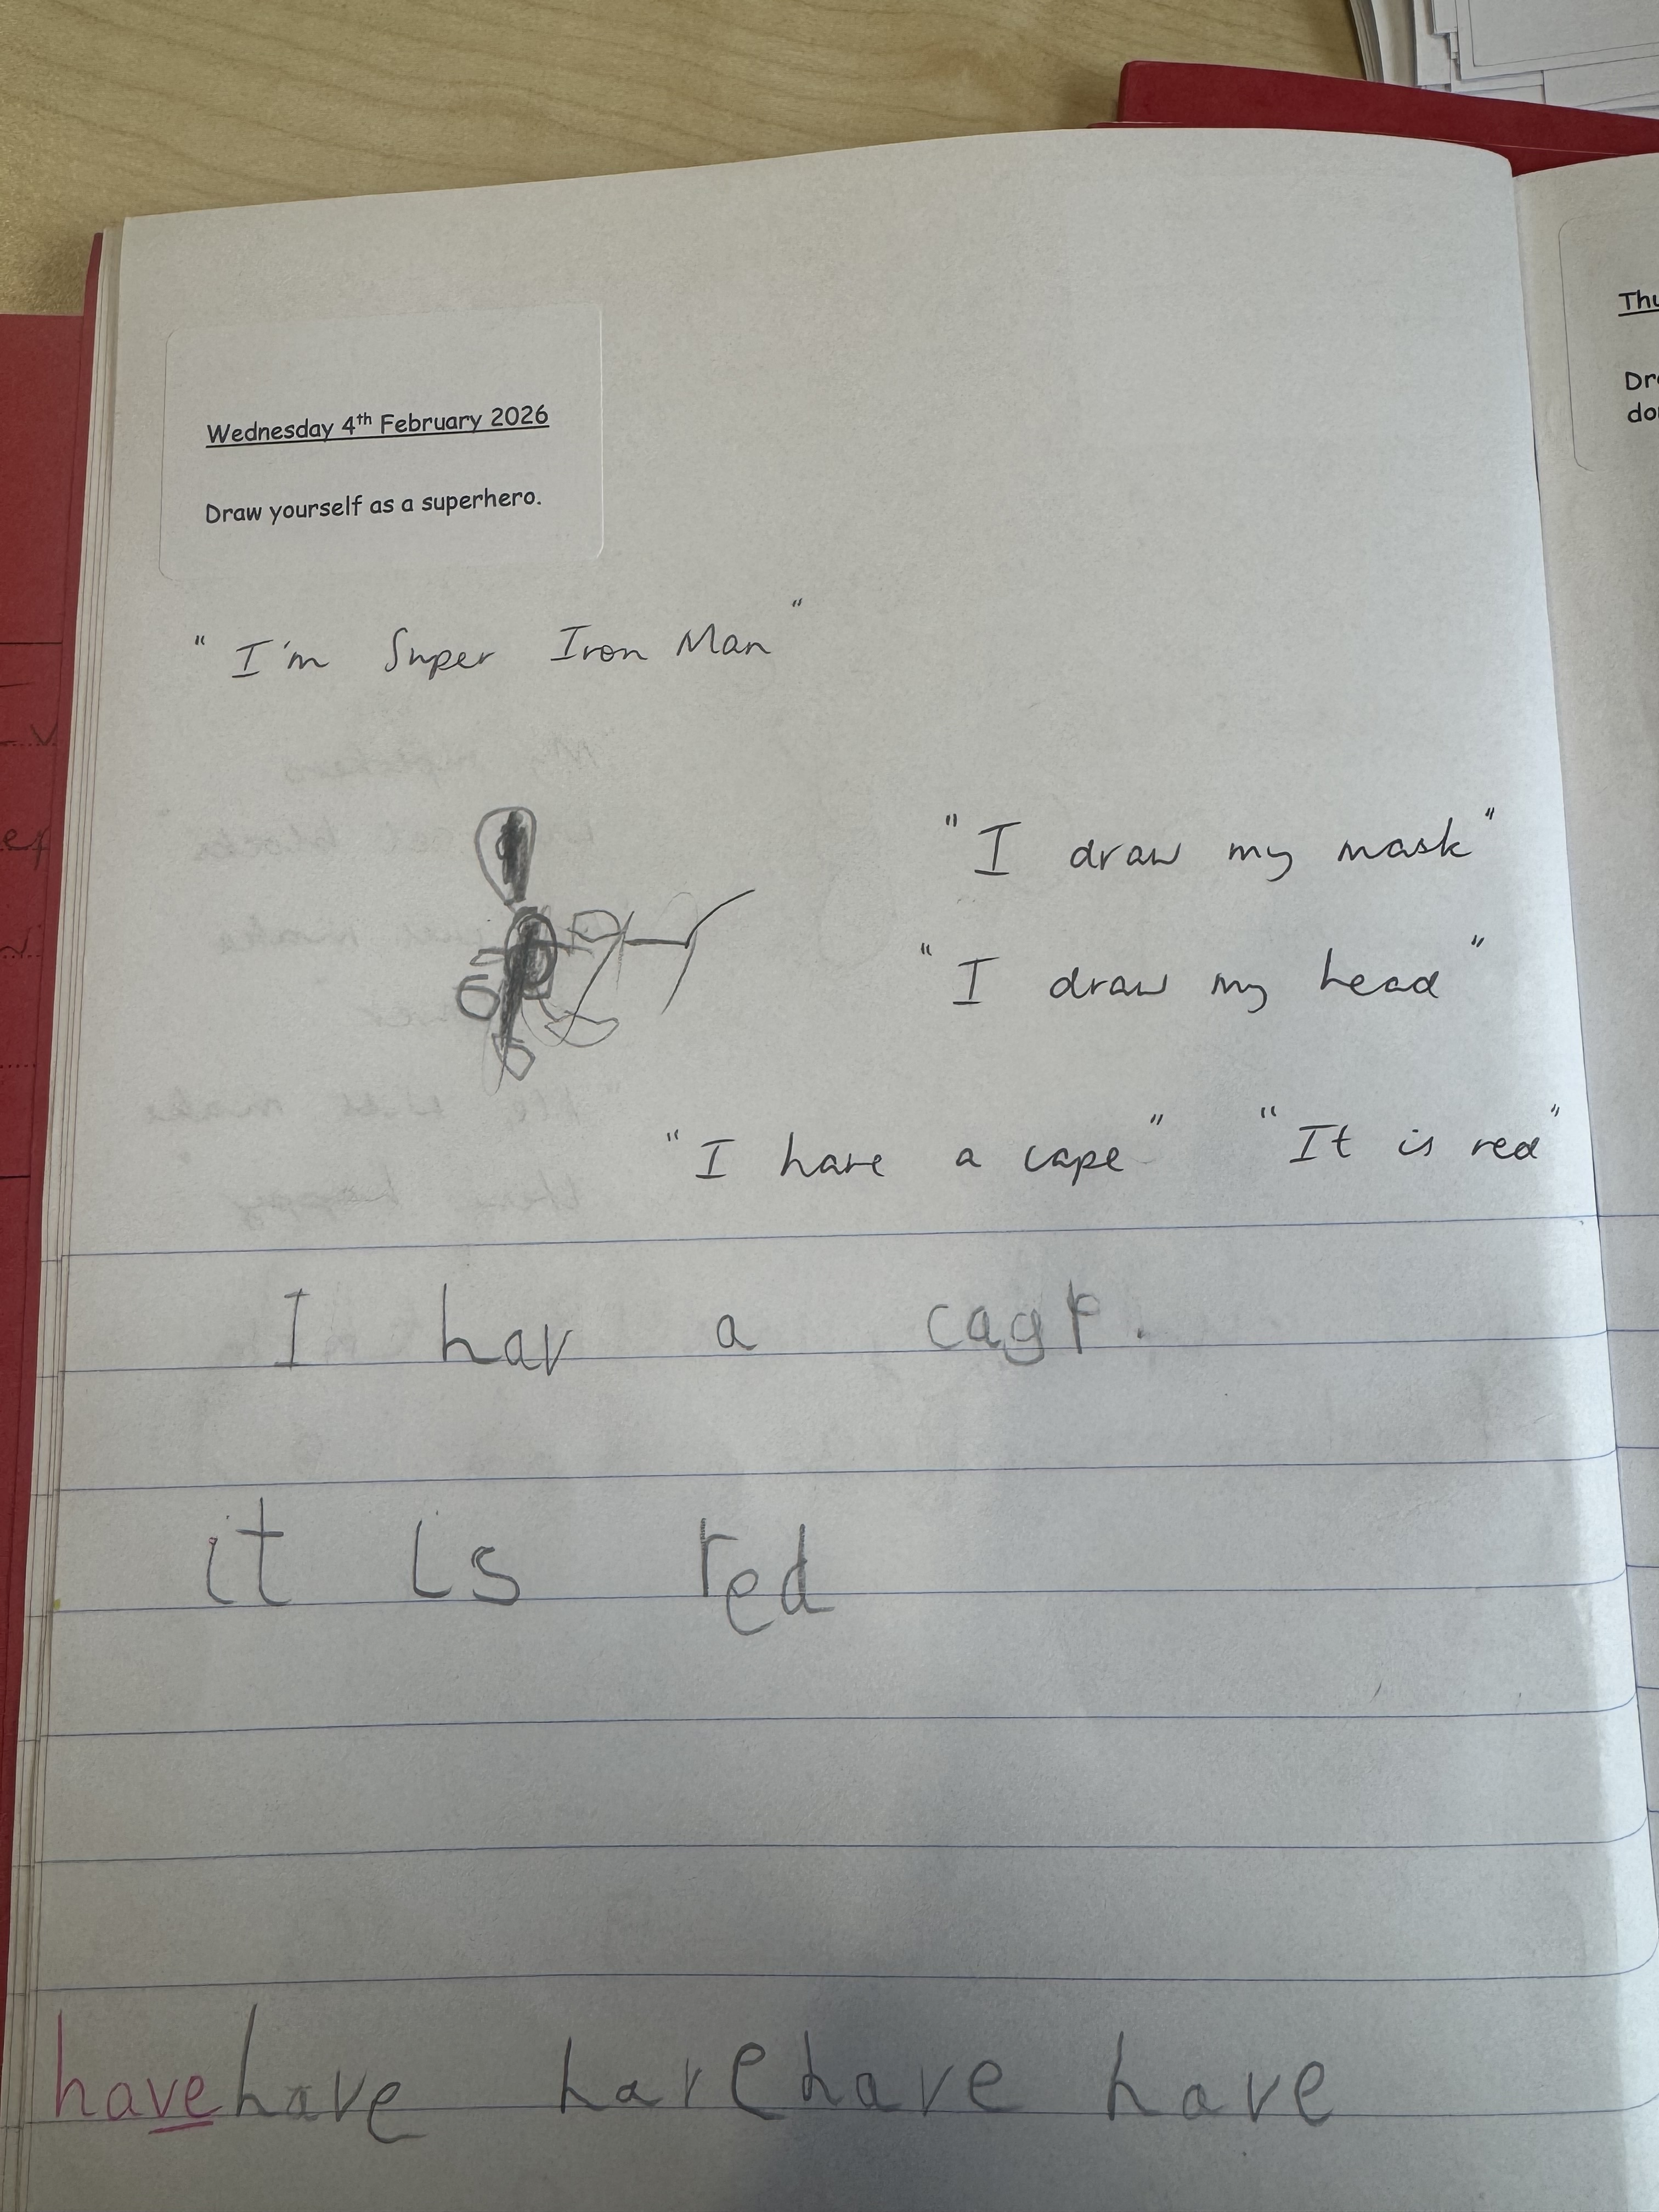 Wednesday 4th February 2026
Draw yourself as a superhero.
"I'm Super Iron Man"
"I draw my mask"
"I draw my head"
"I have a cape" "It is red"
I hav a cagp.
it is red
have have have have have
Thu
Dr
do